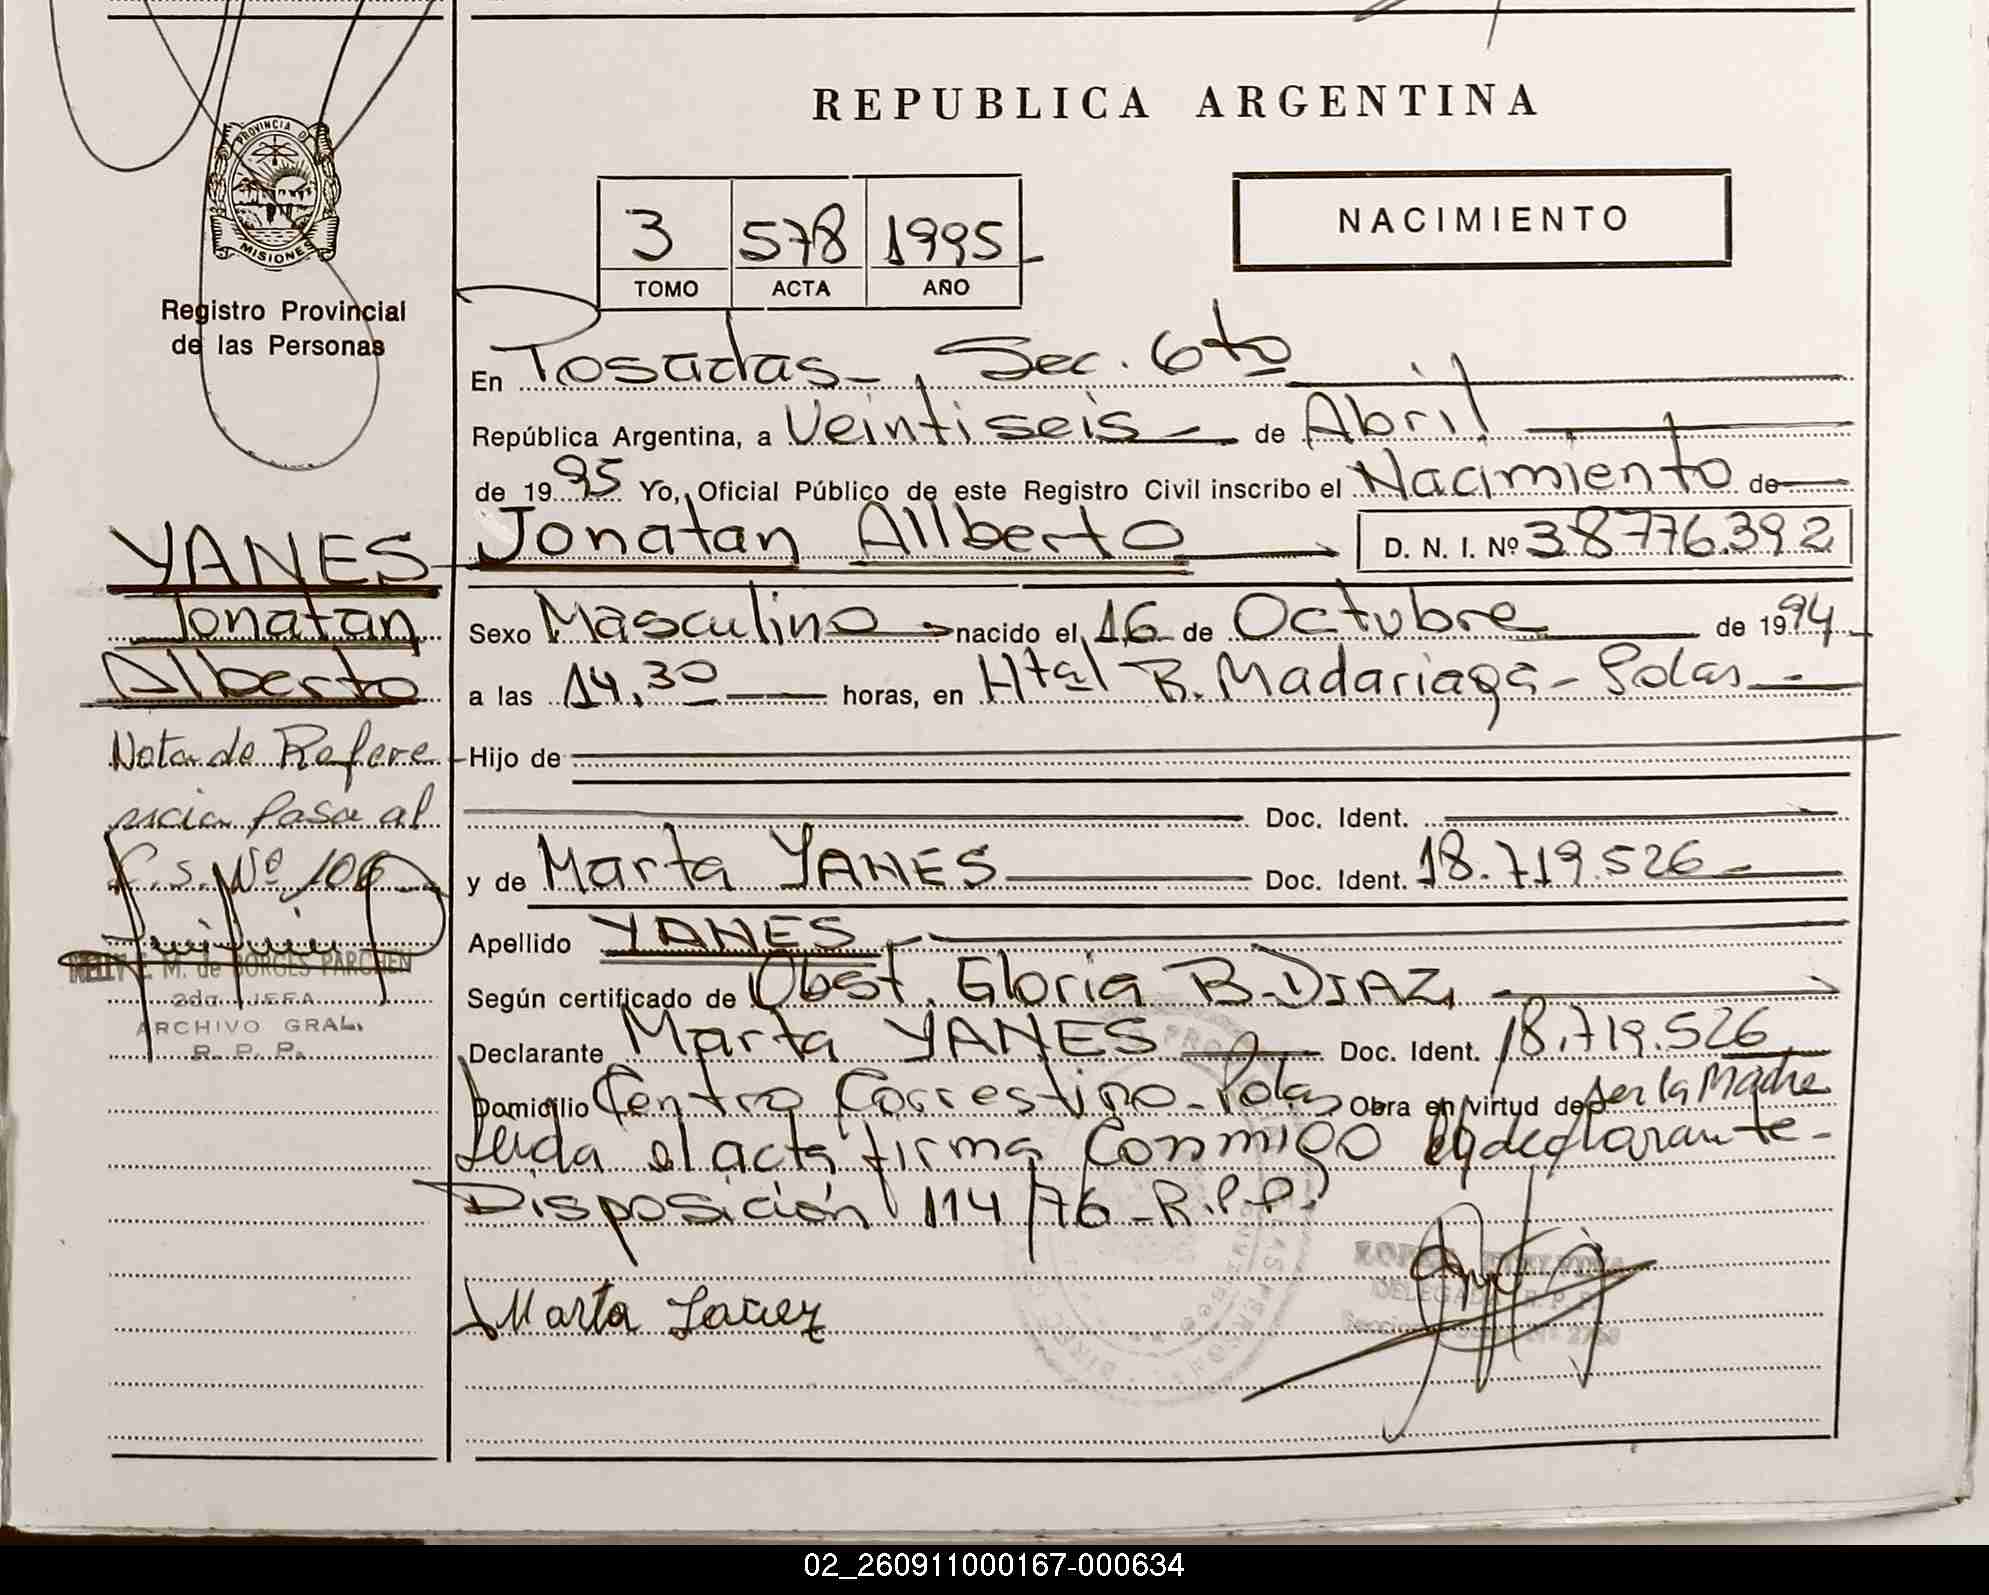 REPUBLICA ARGENTINA
PROVINCIA DE
MISIONES
Registro Provincial
de las Personas
3 578 1995
TOMO ACTA AÑO
NACIMIENTO
En Posadas , Sec. 6to
República Argentina, a Veintiseis de Abril
de 1995 Yo, Oficial Público de este Registro Civil inscribo el Nacimiento de
Jonatan Allberto D. N. I. Nº 38776.392
Sexo Masculino nacido el 16 de Octubre de 1994
a las 14,30 horas, en Htal R. Madariaga - Pdas
Hijo de
Doc. Ident.
y de Marta YANES Doc. Ident. 18.719.526
Apellido YANES
Según certificado de Obst. Gloria B. DIAZ
Declarante Marta YANES Doc. Ident. 18.719.526
Domicilio Centro Correstino - Pdas Obra en virtud de ser la Madre
Leida el acta firma conmigo declarante -
Disposición 114/76 - R.P.P.
Marta Yanez
YANES
Jonatan
Alberto
Nota de Refere
ncia Pasa al
F.S. Nº 106
NELLY E. M. de BORGES PARCHEN
2da. JEFA
ARCHIVO GRAL.
R. P. P.
DELEGADA R. P. P.
02_260911000167-000634